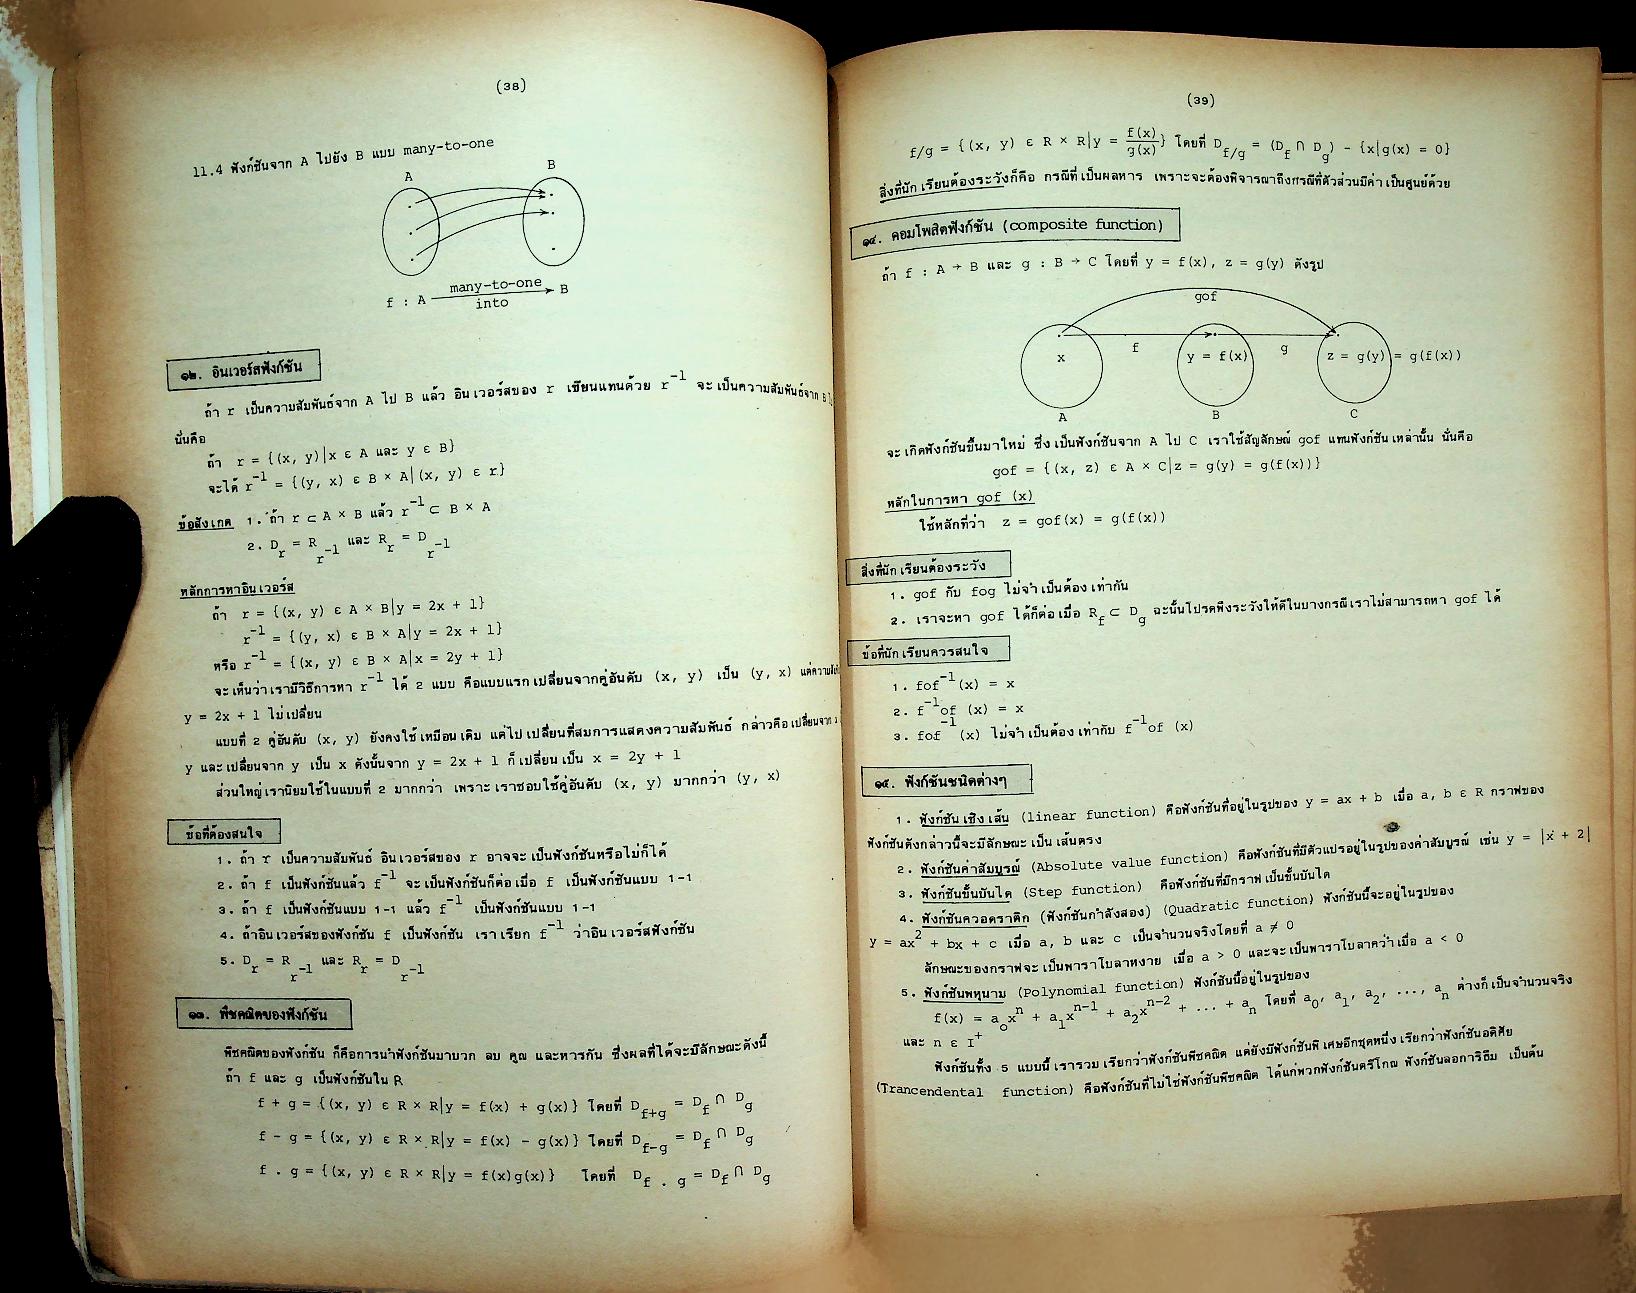 (38)
11.4 ฟังก์ชันจาก A ไปยัง B แบบ many-to-one
A B
f : A many-to-one B
into
๑๒. อินเวอร์สฟังก์ชัน
ถ้า r เป็นความสัมพันธ์จาก A ไป B แล้ว อินเวอร์สของ r เขียนแทนด้วย r⁻¹ จะเป็นความสัมพันธ์จาก B
นั่นคือ
ถ้า r = {(x, y)|x ε A และ y ε B}
จะได้ r⁻¹ = {(y, x) ε B × A|(x, y) ε r}
ข้อสังเกต 1. ถ้า r ⊂ A × B แล้ว r⁻¹ ⊂ B × A
2. D_r = R_r⁻¹ และ R_r = D_r⁻¹
หลักการหาอินเวอร์ส
ถ้า r = {(x, y) ε A × B|y = 2x + 1}
r⁻¹ = {(y, x) ε B × A|y = 2x + 1}
หรือ r⁻¹ = {(x, y) ε B × A|x = 2y + 1}
จะเห็นว่าเรามีวิธีการหา r⁻¹ ได้ 2 แบบ คือแบบแรกเปลี่ยนจากคู่อันดับ (x, y) เป็น (y, x)
y = 2x + 1 ไม่เปลี่ยน
แบบที่ 2 คู่อันดับ (x, y) ยังคงใช้เหมือนเดิม แต่ไปเปลี่ยนที่สมการแสดงความสัมพันธ์ กล่าวคือเปลี่ยนจาก
y และเปลี่ยนจาก y เป็น x ดังนั้นจาก y = 2x + 1 ก็เปลี่ยนเป็น x = 2y + 1
ส่วนใหญ่เรานิยมใช้ในแบบที่ 2 มากกว่า เพราะเราชอบใช้คู่อันดับ (x, y) มากกว่า (y, x)
ข้อที่ต้องสนใจ
1. ถ้า r เป็นความสัมพันธ์ อินเวอร์สของ r อาจจะเป็นฟังก์ชันหรือไม่ก็ได้
2. ถ้า f เป็นฟังก์ชันแล้ว f⁻¹ จะเป็นฟังก์ชันก็ต่อเมื่อ f เป็นฟังก์ชันแบบ 1-1
3. ถ้า f เป็นฟังก์ชันแบบ 1-1 แล้ว f⁻¹ เป็นฟังก์ชันแบบ 1-1
4. ถ้าอินเวอร์สของฟังก์ชัน f เป็นฟังก์ชัน เราเรียก f⁻¹ ว่าอินเวอร์สฟังก์ชัน
5. D_r = R_r⁻¹ และ R_r = D_r⁻¹
๑๓. พีชคณิตของฟังก์ชัน
พีชคณิตของฟังก์ชัน ก็คือการนำฟังก์ชันมาบวก ลบ คูณ และหารกัน ซึ่งผลที่ได้จะมีลักษณะดังนี้
ถ้า f และ g เป็นฟังก์ชันใน R
f + g = {(x, y) ε R × R|y = f(x) + g(x)} โดยที่ D_f+g = D_f ∩ D_g
f - g = {(x, y) ε R × R|y = f(x) - g(x)} โดยที่ D_f-g = D_f ∩ D_g
f . g = {(x, y) ε R × R|y = f(x)g(x)} โดยที่ D_f . g = D_f ∩ D_g
(39)
f/g = {(x, y) ε R × R|y = f(x)/g(x)} โดยที่ D_f/g = (D_f ∩ D_g) - {x|g(x) = 0}
สิ่งที่นักเรียนต้องระวังก็คือ กรณีที่เป็นผลหาร เพราะจะต้องพิจารณาถึงกรณีที่ตัวส่วนมีค่าเป็นศูนย์ด้วย
๑๔. คอมโพสิตฟังก์ชัน (composite function)
ถ้า f : A → B และ g : B → C โดยที่ y = f(x), z = g(y) ดังรูป
gof
f g
x y = f(x) z = g(y) = g(f(x))
A B C
จะเกิดฟังก์ชันขึ้นมาใหม่ ซึ่งเป็นฟังก์ชันจาก A ไป C เราใช้สัญลักษณ์ gof แทนฟังก์ชันเหล่านั้น นั่นคือ
gof = {(x, z) ε A × C|z = g(y) = g(f(x))}
หลักในการหา gof (x)
ใช้หลักที่ว่า z = gof(x) = g(f(x))
สิ่งที่นักเรียนต้องระวัง
1. gof กับ fog ไม่จำเป็นต้องเท่ากัน
2. เราจะหา gof ได้ก็ต่อเมื่อ R_f ⊂ D_g ฉะนั้นโปรดพึงระวังให้ดีในบางกรณีเราไม่สามารถหา gof ได้
ข้อที่นักเรียนควรสนใจ
1. fof⁻¹(x) = x
2. f⁻¹of (x) = x
3. fof⁻¹(x) ไม่จำเป็นต้องเท่ากับ f⁻¹of (x)
๑๕. ฟังก์ชันชนิดต่างๆ
1. ฟังก์ชันเชิงเส้น (linear function) คือฟังก์ชันที่อยู่ในรูปของ y = ax + b เมื่อ a, b ε R กราฟของ
ฟังก์ชันดังกล่าวนี้จะมีลักษณะเป็นเส้นตรง
2. ฟังก์ชันค่าสัมบูรณ์ (Absolute value function) คือฟังก์ชันที่มีตัวแปรอยู่ในรูปของค่าสัมบูรณ์ เช่น y = |x + 2|
3. ฟังก์ชันขั้นบันได (Step function) คือฟังก์ชันที่มีกราฟเป็นขั้นบันได
4. ฟังก์ชันควอดราติก (ฟังก์ชันกำลังสอง) (Quadratic function) ฟังก์ชันนี้จะอยู่ในรูปของ
y = ax² + bx + c เมื่อ a, b และ c เป็นจำนวนจริงโดยที่ a ≠ 0
ลักษณะของกราฟจะเป็นพาราโบลาหงาย เมื่อ a > 0 และจะเป็นพาราโบลาคว่ำเมื่อ a < 0
5. ฟังก์ชันพหุนาม (Polynomial function) ฟังก์ชันนี้อยู่ในรูปของ
f(x) = a₀xⁿ + a₁xⁿ⁻¹ + a₂xⁿ⁻² + ... + aₙ โดยที่ a₀, a₁, a₂, ..., aₙ ต่างก็เป็นจำนวนจริง
และ n ε I⁺
ฟังก์ชันทั้ง 5 แบบนี้เรารวมเรียกว่าฟังก์ชันพีชคณิต แต่ยังมีฟังก์ชันพิเศษอีกชุดหนึ่งเรียกว่าฟังก์ชันอดิศัย
(Trancendental function) คือฟังก์ชันที่ไม่ใช่ฟังก์ชันพีชคณิต ได้แก่พวกฟังก์ชันตรีโกณ ฟังก์ชันลอการิธึม เป็นต้น